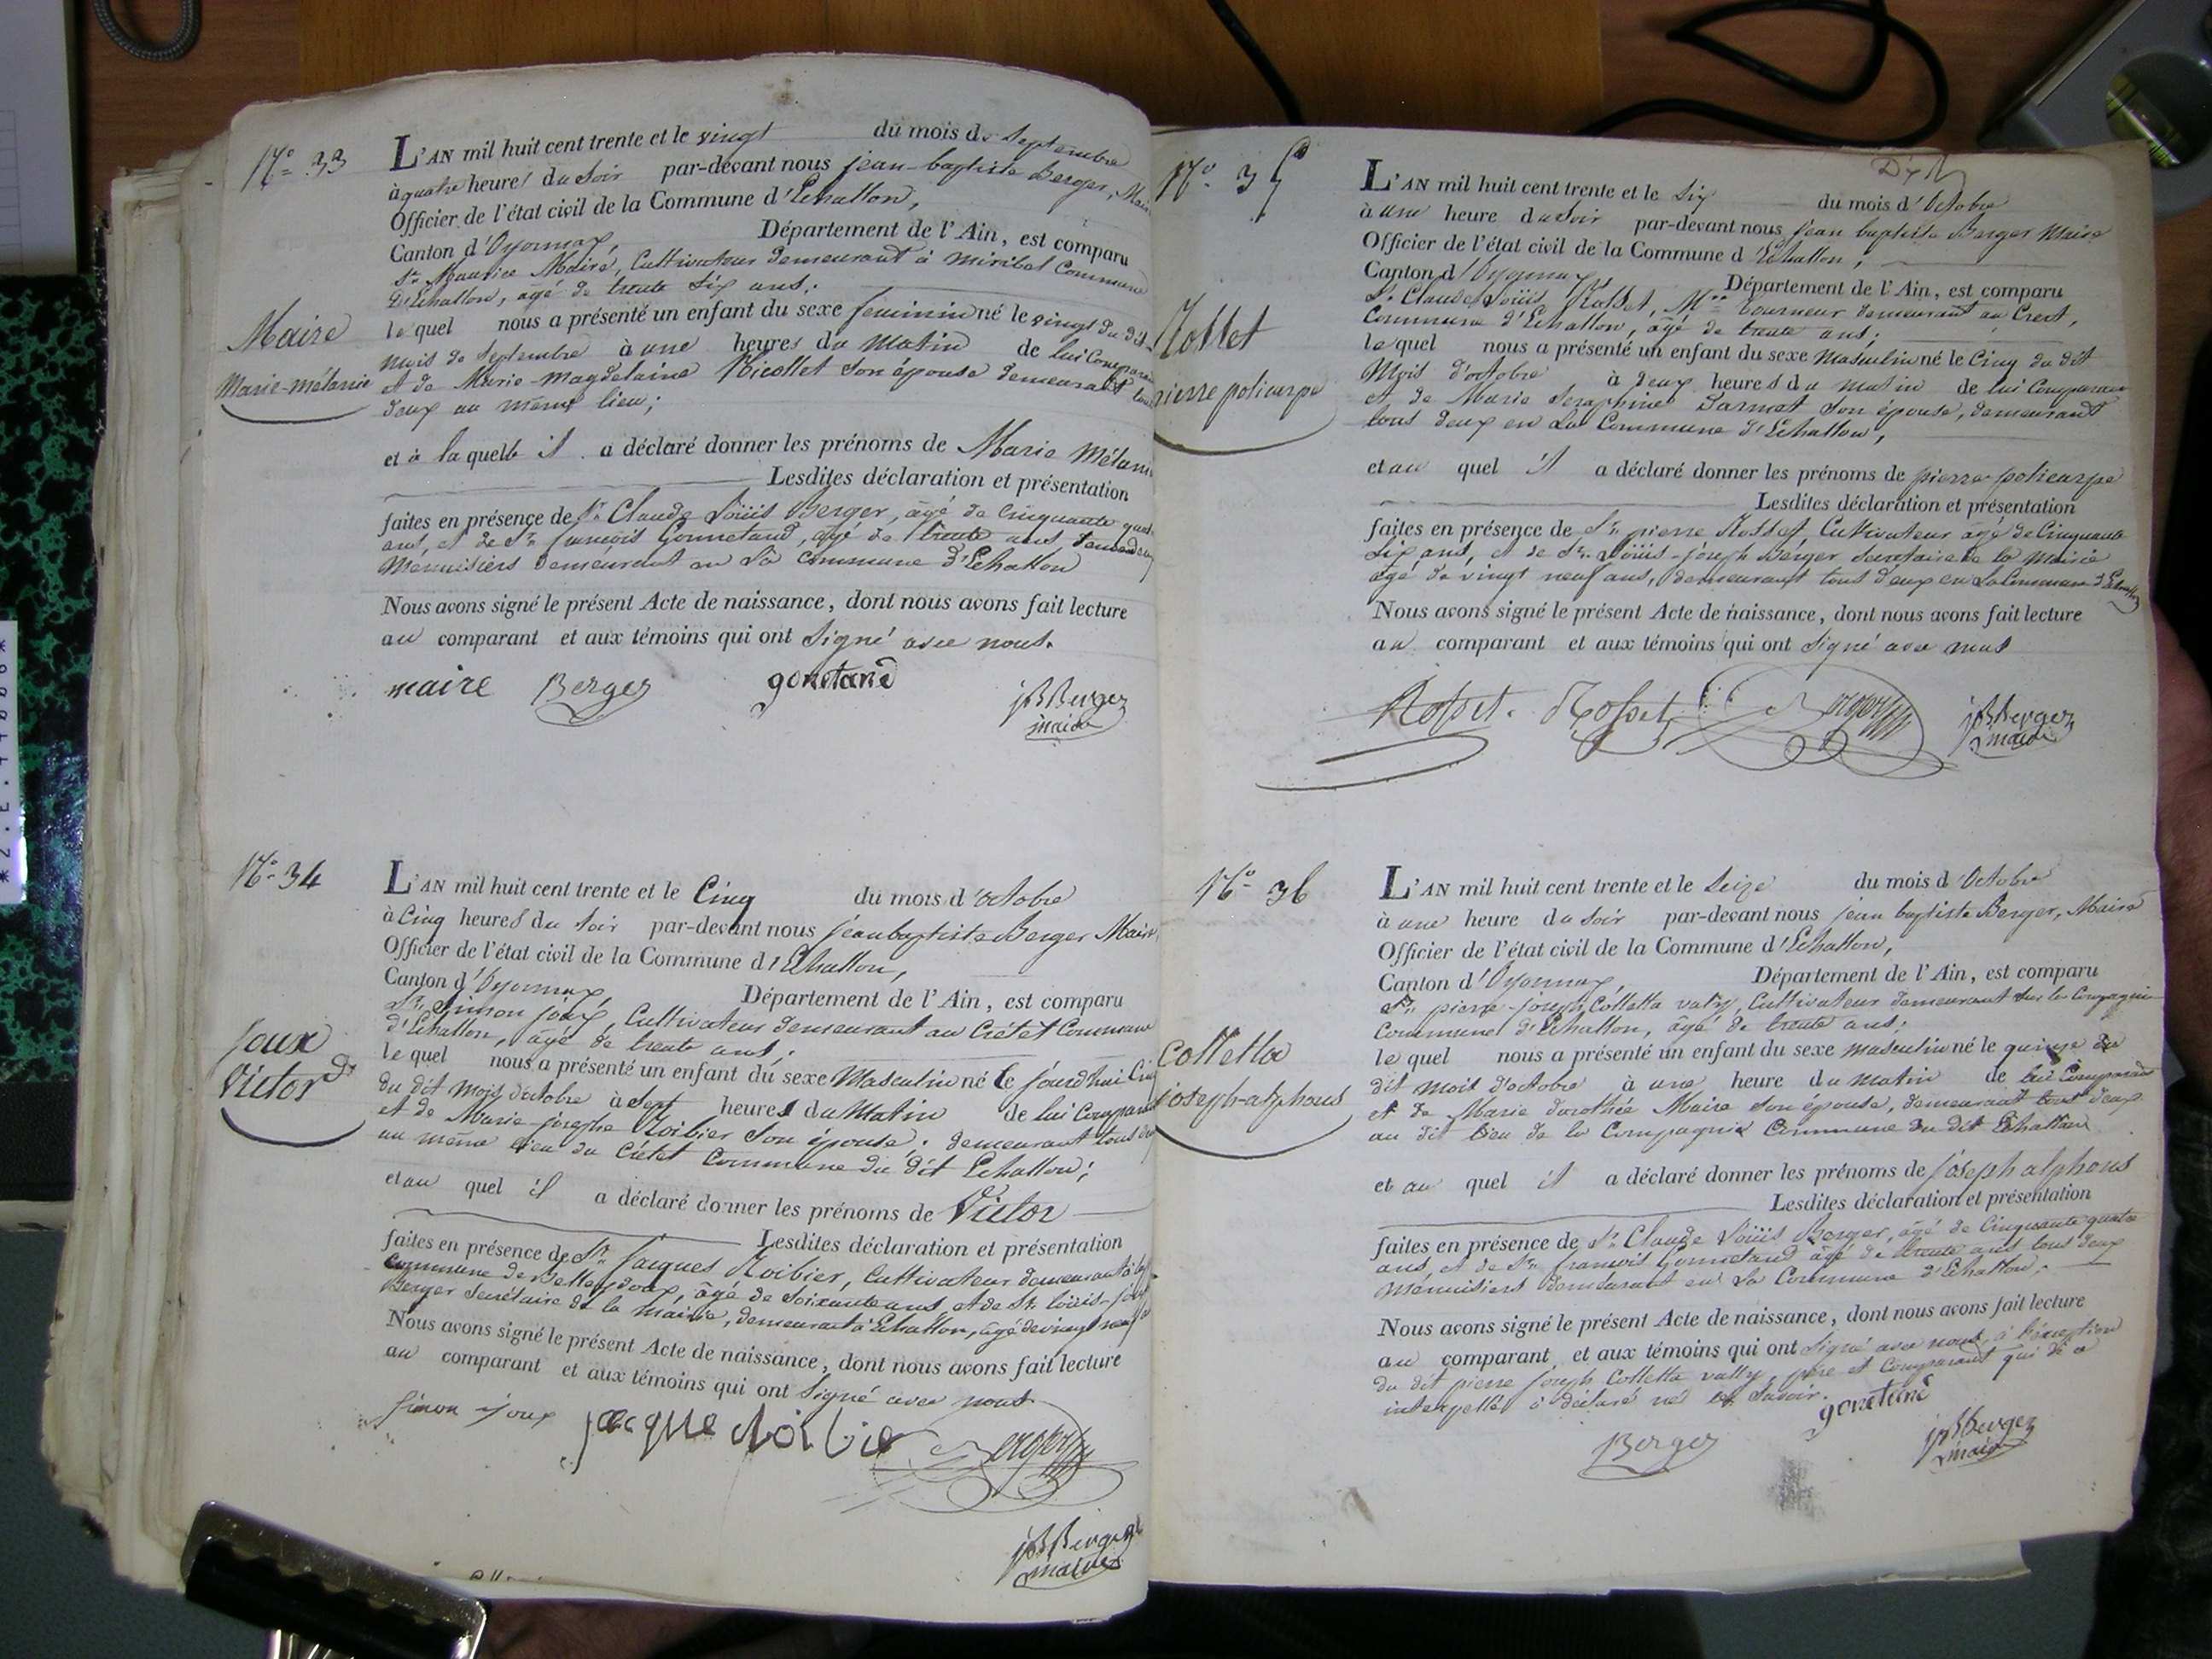 N° 33
L'AN mil huit cent trente et le vingt du mois de Septembre
à quatre heures du Soir par-devant nous jean-baptiste Berger, Maire
Officier de l'état civil de la Commune d'Echallon,
Canton d'Oyonnax, Département de l'Ain, est comparu
Sr. Maurice Maire, Cultivateur demeurant à miribel Commune
D'Echallon, agé de trente six ans;
Maire
le quel nous a présenté un enfant du sexe feminin né le vingt du dit
mois de Septembre à une heures du Matin de lui Comparant
Marie-mélanie
et de Marie-magdelaine Nicollet Son épouse demeurant tous
deux au même lieu;
et à la quelle il a déclaré donner les prénoms de Marie Mélanie
Lesdites déclaration et présentation
faites en présence de Sr. Claude Loüis Berger, âgé de Cinquante quatre
ans, et de Sr. francois Gonnetand, agé de trente ans tous deux
Menuisiers demeurant en La Commune d'Echallon
Nous avons signé le présent Acte de naissance, dont nous avons fait lecture
au comparant et aux témoins qui ont Signé avec nous.
maire Berger gonetand jBBerger
maire
N° 34
L'AN mil huit cent trente et le Cinq du mois d'octobre
à Cinq heures du Soir par-devant nous jean baptiste Berger Maire
Officier de l'état civil de la Commune d'Echallon,
Canton d'Oyonnax, Département de l'Ain, est comparu
Sr. Simon joux, Cultivateur demeurant au Crétet Commune
d'Echallon, âgé de trente ans;
Joux
Victor
le quel nous a présenté un enfant du sexe Masculin né le jourdhui Cinq
du dit mois d'octobre à Sept heures du Matin de lui Comparant
et de Marie josephe Noibier Son épouse; demeurant tous deux
au même lieu du Crétet Commune du dit Echallon;
et au quel il a déclaré donner les prénoms de Victor
Lesdites déclaration et présentation
faites en présence de Sr. Jacques Noibier, Cultivateur demeurant à la
Commune de Belleydoux, âgé de Soixante ans et de Sr. Loüis-joseph
Berger Secrétaire de la Mairie, demeurant à Echallon, âgé de vingt neuf
Nous avons signé le présent Acte de naissance, dont nous avons fait lecture
au comparant et aux témoins qui ont Signé avec nous
Simon joux jacque Noibie Berger
jBBerger
maire
N° 35
L'AN mil huit cent trente et le Six du mois d'Octobre
à une heure du Soir par-devant nous jean baptiste Berger Maire
Officier de l'état civil de la Commune d'Echallon,
Canton d'Oyonnax, Département de l'Ain, est comparu
Sr. Claude Loüis Rosset, Md. tourneur demeurant au Crest,
Commune d'Echallon, âgé de trente ans;
Rosset
le quel nous a présenté un enfant du sexe Masculin né le Cinq du dit
Mois d'octobre à deux heures du matin de lui Comparant
pierre policarpe
et de Marie Seraphine Darmet Son épouse, demeurant
tous deux en La Commune d'Echallon,
et au quel il a déclaré donner les prénoms de pierre policarpe
Lesdites déclaration et présentation
faites en présence de Sr. pierre Rosset, Cultivateur âgé de Cinquante
Six ans, et de Sr. Loüis-joseph Berger Secretaire de la Mairie
agé de vingt neuf ans, demeurant tous deux en La Commune d'Echallon
Nous avons signé le présent Acte de naissance, dont nous avons fait lecture
au comparant et aux témoins qui ont Signé avec nous
Rosset. Rosset Berger jBBerger
maire
N° 36
L'AN mil huit cent trente et le Seize du mois d'Octobre
à une heure du Soir par-devant nous jean baptiste Berger, Maire
Officier de l'état civil de la Commune d'Echallon,
Canton d'Oyonnax, Département de l'Ain, est comparu
Sr. pierre-joseph Colletta vally, Cultivateur demeurant Sur la Compagnie
Commune d'Echallon, âgé de trente ans;
Colletta
le quel nous a présenté un enfant du sexe masculin né le quinze du
dit mois d'octobre à une heure du Matin de lui Comparant
joseph-alphons
et de Marie dorothée Maire Son épouse, demeurant tous deux
au dit Lieu de la Compagnie Commune du dit Echallon
et au quel il a déclaré donner les prénoms de joseph alphons
Lesdites déclaration et présentation
faites en présence de Sr. Claude Loüis Berger, âgé de Cinquante quatre
ans, et de Sr. francois Gonnetand âgé de trente ans tous deux
Menuisiers demeurant en La Commune d'Echallon.
Nous avons signé le présent Acte de naissance, dont nous avons fait lecture
au comparant et aux témoins qui ont Signé avec nous, à l'éxception
du dit pierre joseph Colletta vally, père et Comparant qui de ce
interpellé a déclaré ne le Savoir.
Berger gonetand jBBerger
maire